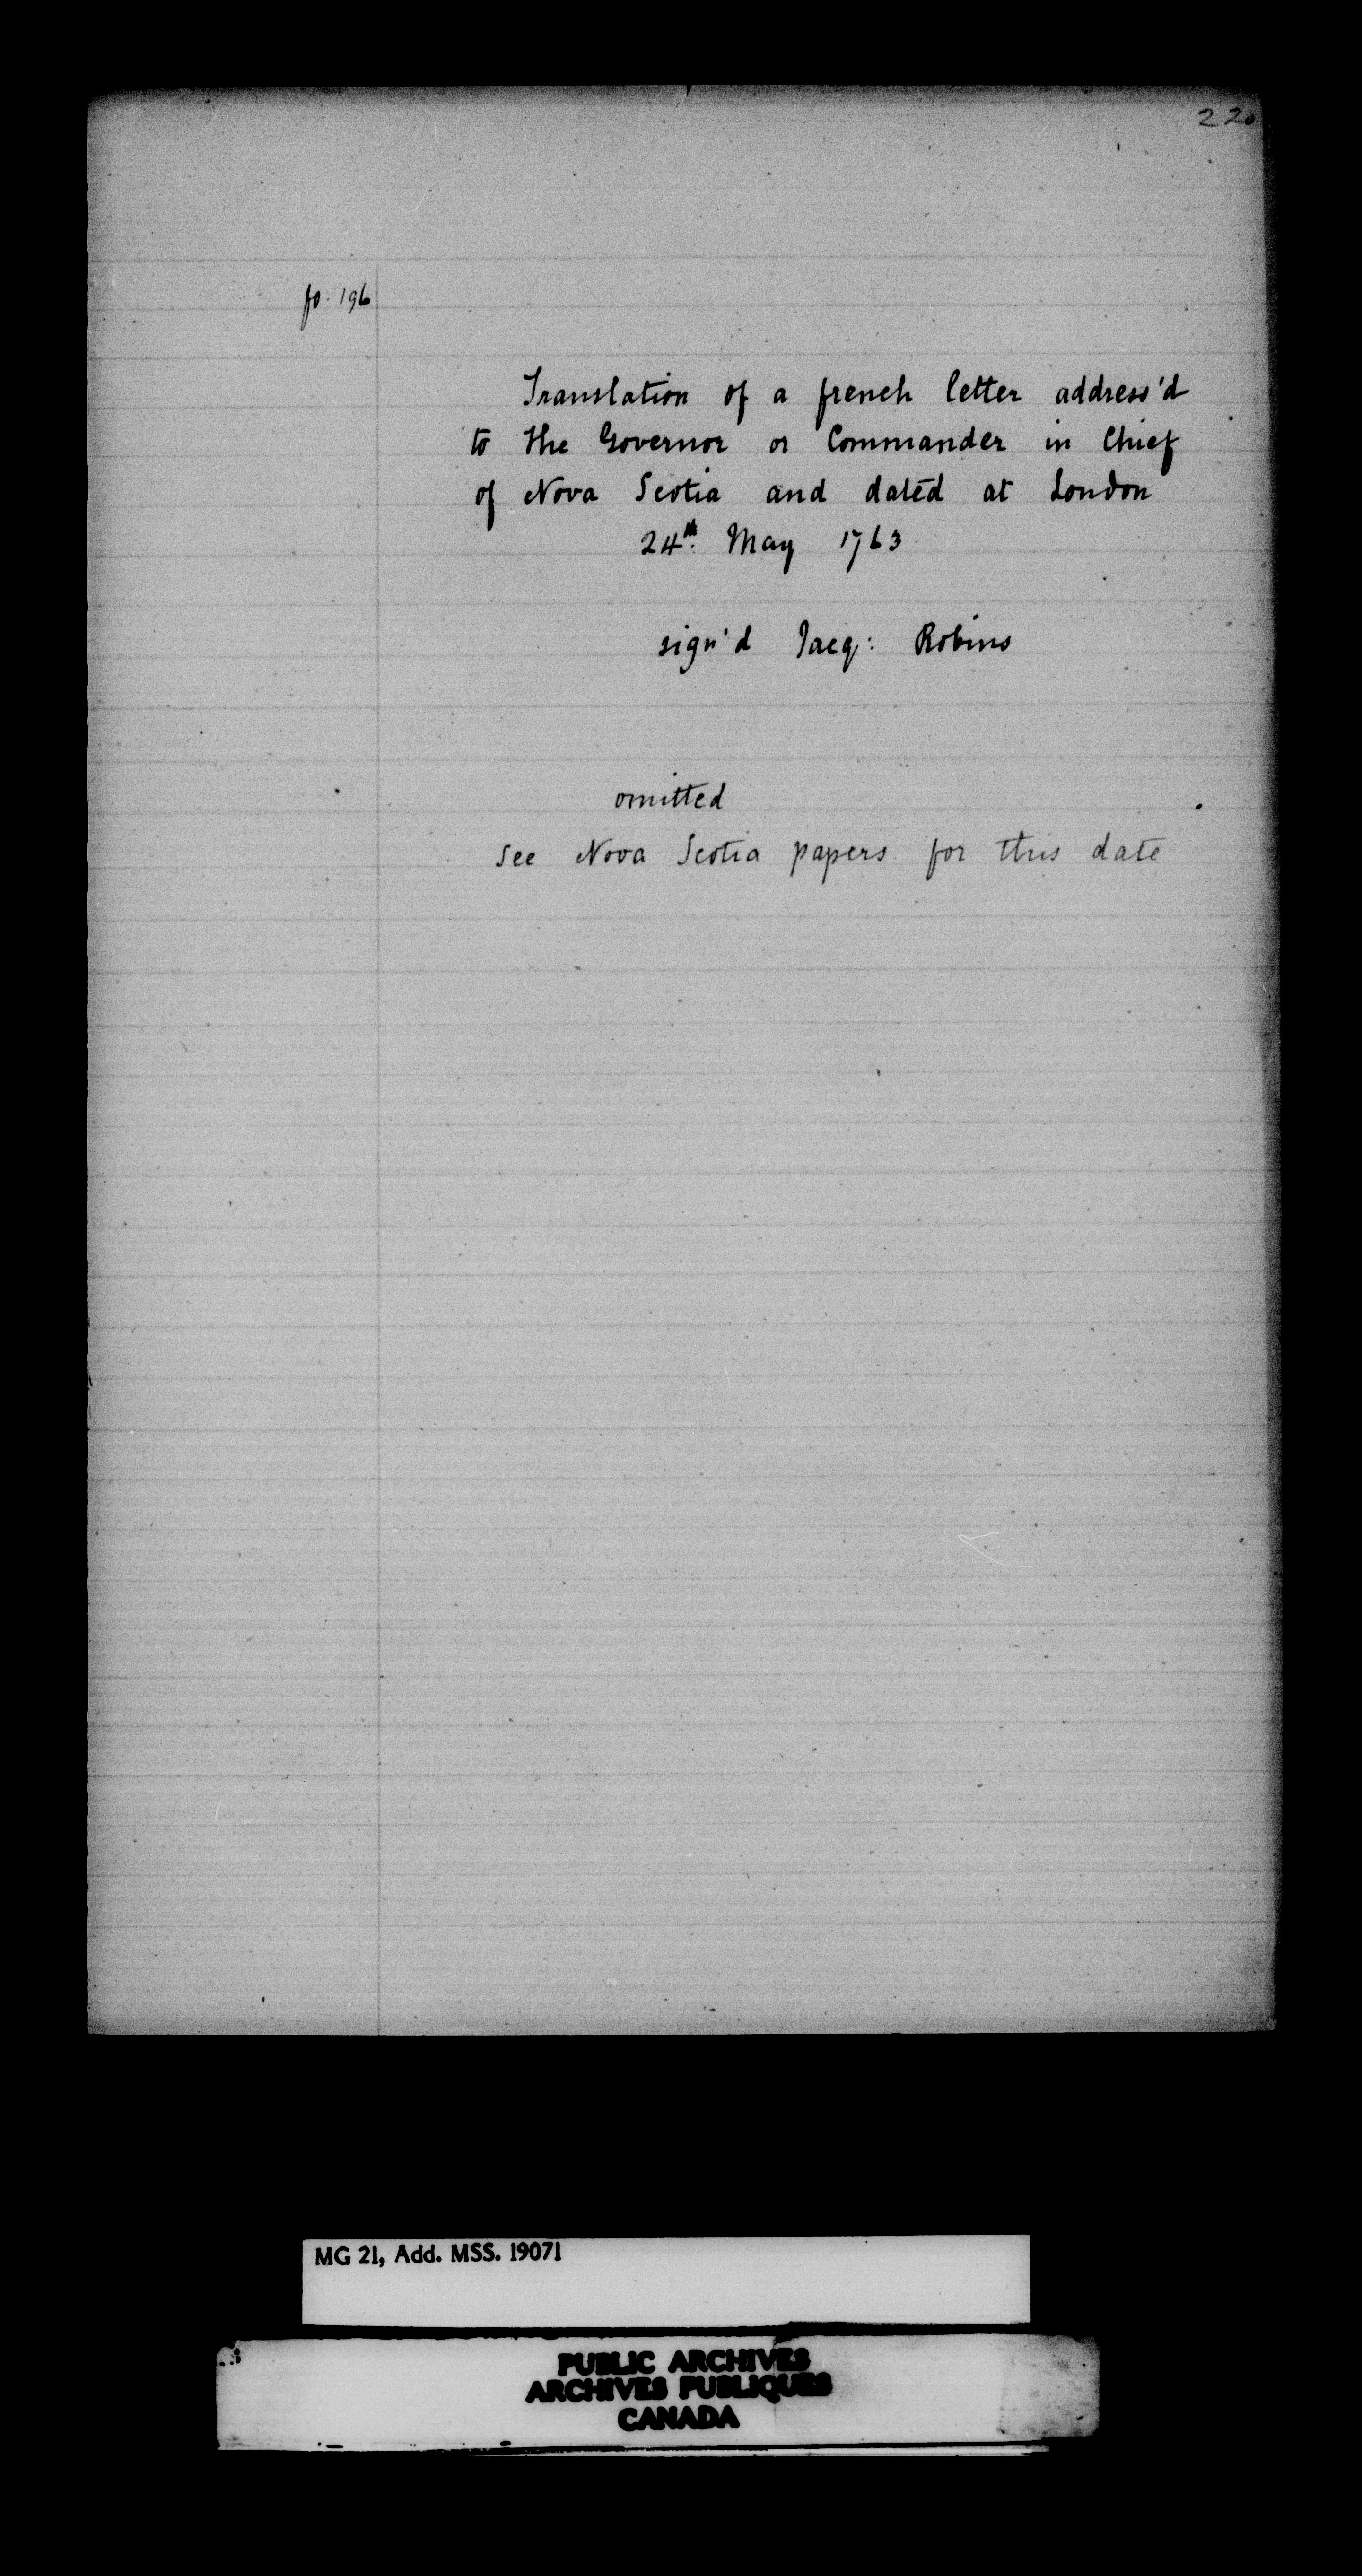 220
fo. 196
Translation of a french letter address'd
to the Governor or Commander in Chief
of Nova Scotia and dated at London
24th. May 1763
sign'd Jacq: Robins
omitted
see Nova Scotia papers for this date
MG 21, Add. MSS. 19071
PUBLIC ARCHIVES
ARCHIVES PUBLIQUES
CANADA